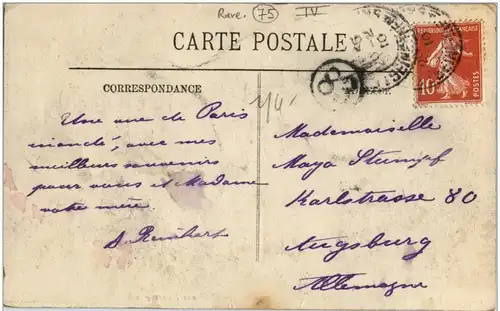 Rare. 75 IV
CARTE POSTALE
REPUBLIQUE FRANÇAISE
10
POSTES
CORRESPONDANCE
1/4
Une vue de Paris
inondé, avec mes
meilleurs souvenirs
pour vous et Madame
votre mère.
Mademoiselle
Maya
Karlstrasse 80
Augsburg
Allemagne